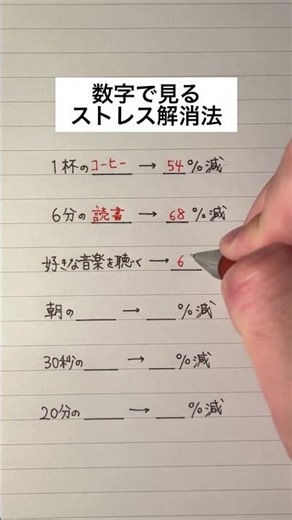 数字で見る
ストレス解消法
1杯のコーヒー → 54%減
6分の読書 → 68%減
好きな音楽を聴く → 6
朝の____ → ___%減
30秒の____ → ___%減
20分の____ → ___%減